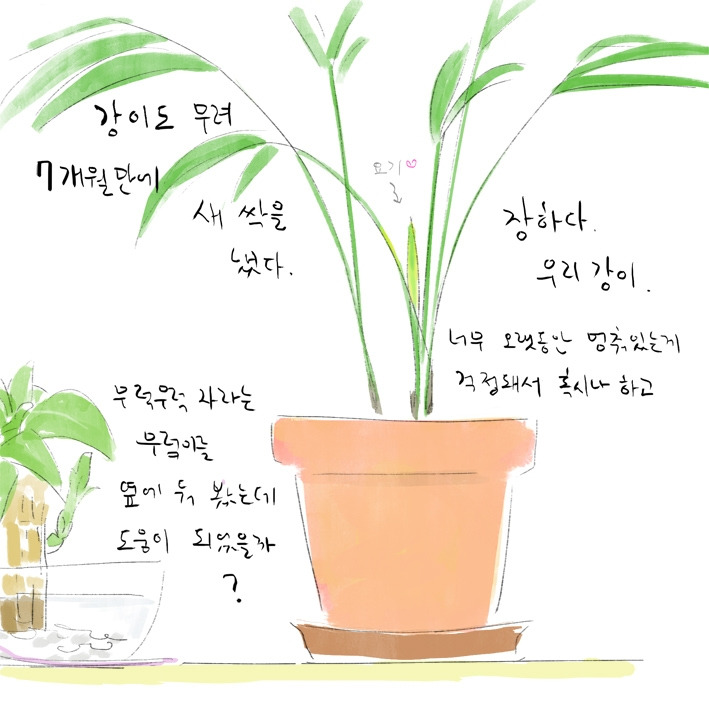 강이도 무려
7개월만에
새 싹을
냈다.
요기♡
장하다.
우리 강이.
너무 오랫동안 멈춰있는게
걱정돼서 혹시나 하고
무럭무럭 자라는
무럭이를
옆에 둬 봤는데
도움이 되었을까
?